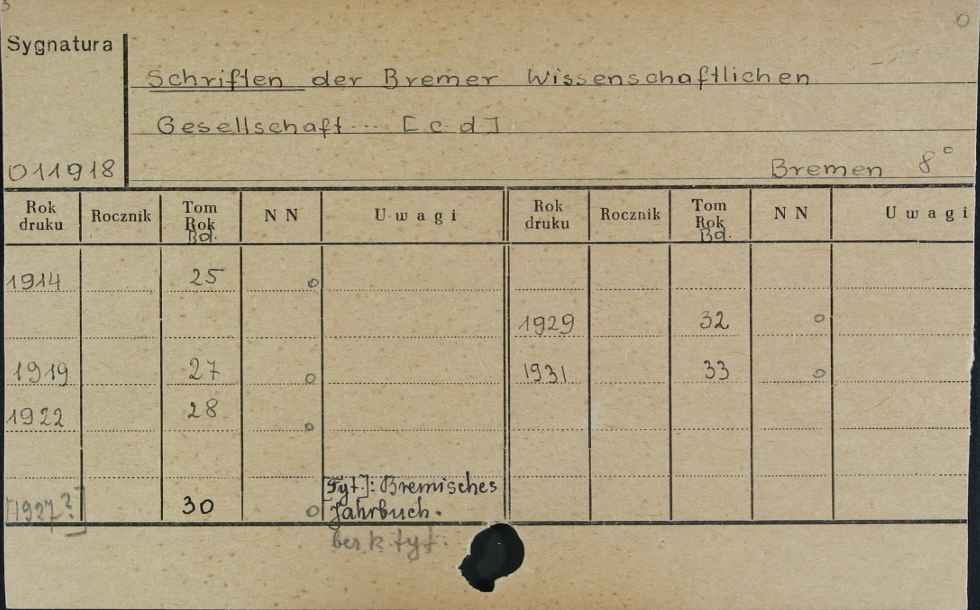 Sygnatura
Schriften der Bremer Wissenschaftlichen
Gesellschaft ... [c.d]
011918
Bremen 8°
Rok druku Rocznik Tom Rok Bd. N N Uwagi Rok druku Rocznik Tom Rok Bd. N N Uwagi
1914 25 o
1929 32 o
1919 27 o 1931 33 o
1922 28 o
[Tyt.]: Bremisches
[1927?] 30 o Jahrbuch.
bez k. tyt.